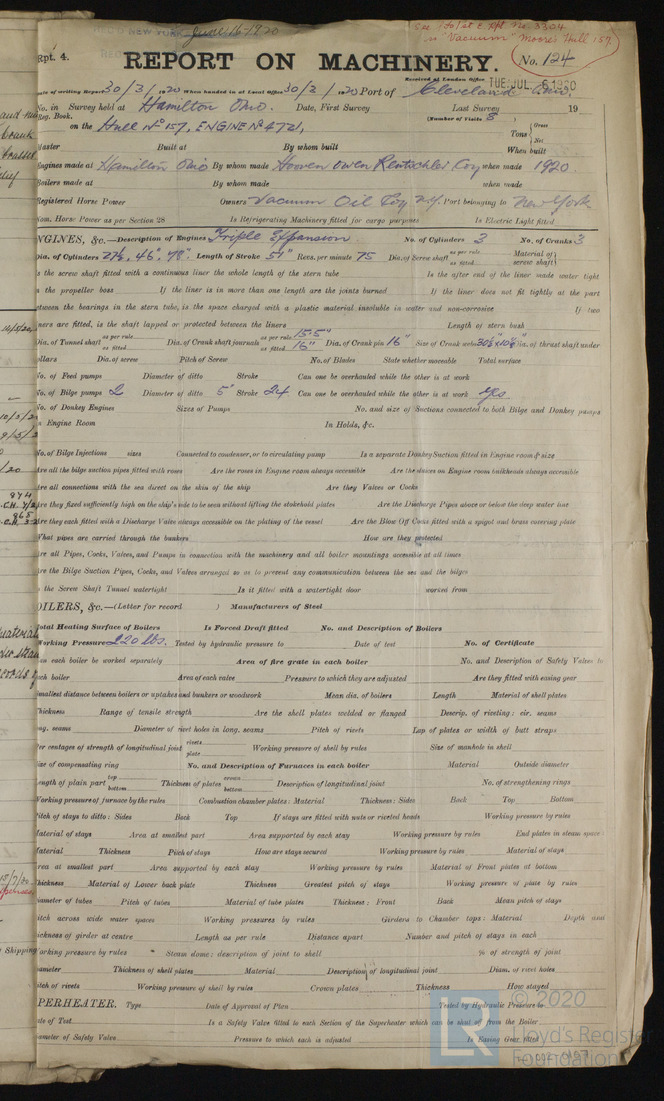 June 16 1920
See 1st E. Rpt No. 3304
on "Vacuum" Moores Hull 157
Rpt. 4.
REPORT ON MACHINERY.
No. 124
Received at London Office TUE. JUL. 6 1920
Date of writing Report 30/3/1920 When handed in at Local Office 30/3/1920 Port of Cleveland Ohio.
No. in Survey held at Hamilton Ohio. Date, First Survey Last Survey 19
Reg. Book. (Number of Visits 8
on the Hull No 157, ENGINE No 4721, Tons { Gross Net
Master Built at By whom built When built
Engines made at Hamilton Ohio By whom made Hooven Owen Rentschler Coy when made 1920.
Boilers made at By whom made when made
Registered Horse Power Owners Vacuum Oil Coy N.Y. Port belonging to New York
Nom. Horse Power as per Section 28 Is Refrigerating Machinery fitted for cargo purposes Is Electric Light fitted
ENGINES, &c.—Description of Engines Triple Expansion No. of Cylinders 3 No. of Cranks 3
Dia. of Cylinders 27½, 46", 78" Length of Stroke 54" Revs. per minute 75 Dia. of Screw shaft as per rule as fitted Material of screw shaft
Is the screw shaft fitted with a continuous liner the whole length of the stern tube Is the after end of the liner made water tight
in the propeller boss If the liner is in more than one length are the joints burned If the liner does not fit tightly at the part
between the bearings in the stern tube, is the space charged with a plastic material insoluble in water and non-corrosive If two
liners are fitted, is the shaft lapped or protected between the liners Length of stern bush
Dia. of Tunnel shaft as per rule as fitted Dia. of Crank shaft journals as per rule 15.5" as fitted 16" Dia. of Crank pin 16" Size of Crank webs Dia. of thrust shaft under
collars Dia. of screw Pitch of Screw No. of Blades State whether moveable Total surface
No. of Feed pumps Diameter of ditto Stroke Can one be overhauled while the other is at work
No. of Bilge pumps 2 Diameter of ditto 5" Stroke 24 Can one be overhauled while the other is at work yes
No. of Donkey Engines Sizes of Pumps No. and size of Suctions connected to both Bilge and Donkey pumps
In Engine Room In Holds, &c.
No. of Bilge Injections sizes Connected to condenser, or to circulating pump Is a separate Donkey Suction fitted in Engine room & size
Are all the bilge suction pipes fitted with roses Are the roses in Engine room always accessible Are the sluices on Engine room bulkheads always accessible
Are all connections with the sea direct on the skin of the ship Are they Valves or Cocks
Are they fixed sufficiently high on the ship's side to be seen without lifting the stokehold plates Are the Discharge Pipes above or below the deep water line
Are they each fitted with a Discharge Valve always accessible on the plating of the vessel Are the Blow Off Cocks fitted with a spigot and brass covering plate
What pipes are carried through the bunkers How are they protected
Are all Pipes, Cocks, Valves, and Pumps in connection with the machinery and all boiler mountings accessible at all times
Are the Bilge Suction Pipes, Cocks, and Valves arranged so as to prevent any communication between the sea and the bilges
Is the Screw Shaft Tunnel watertight Is it fitted with a watertight door worked from
BOILERS, &c.—(Letter for record ) Manufacturers of Steel
Total Heating Surface of Boilers Is Forced Draft fitted No. and Description of Boilers
Working Pressure 220 lbs. Tested by hydraulic pressure to Date of test No. of Certificate
Can each boiler be worked separately Area of fire grate in each boiler No. and Description of Safety Valves to
each boiler Area of each valve Pressure to which they are adjusted Are they fitted with easing gear
Smallest distance between boilers or uptakes and bunkers or woodwork Mean dia. of boilers Length Material of shell plates
Thickness Range of tensile strength Are the shell plates welded or flanged Descrip. of riveting: cir. seams
long. seams Diameter of rivet holes in long. seams Pitch of rivets Lap of plates or width of butt straps
Per centages of strength of longitudinal joint rivets plate Working pressure of shell by rules Size of manhole in shell
Size of compensating ring No. and Description of Furnaces in each boiler Material Outside diameter
Length of plain part top bottom Thickness of plates crown bottom Description of longitudinal joint No. of strengthening rings
Working pressure of furnace by the rules Combustion chamber plates: Material Thickness: Sides Back Top Bottom
Pitch of stays to ditto: Sides Back Top If stays are fitted with nuts or riveted heads Working pressure by rules
Material of stays Area at smallest part Area supported by each stay Working pressure by rules End plates in steam space:
Material Thickness Pitch of stays How are stays secured Working pressure by rules Material of stays
Area at smallest part Area supported by each stay Working pressure by rules Material of Front plates at bottom
Thickness Material of Lower back plate Thickness Greatest pitch of stays Working pressure of plate by rules
Diameter of tubes Pitch of tubes Material of tube plates Thickness: Front Back Mean pitch of stays
Pitch across wide water spaces Working pressures by rules Girders to Chamber tops: Material Depth and
thickness of girder at centre Length as per rule Distance apart Number and pitch of stays in each
Working pressure by rules Steam dome: description of joint to shell % of strength of joint
Diameter Thickness of shell plates Material Description of longitudinal joint Diam. of rivet holes
Pitch of rivets Working pressure of shell by rules Crown plates Thickness How stayed
SUPERHEATER. Type Date of Approval of Plan Tested by Hydraulic Pressure to
Date of Test Is a Safety Valve fitted to each Section of the Superheater which can be shut off from the Boiler
Diameter of Safety Valve Pressure to which each is adjusted Is Easing Gear fitted
© 2020
Lloyd's Register
Foundation
LR